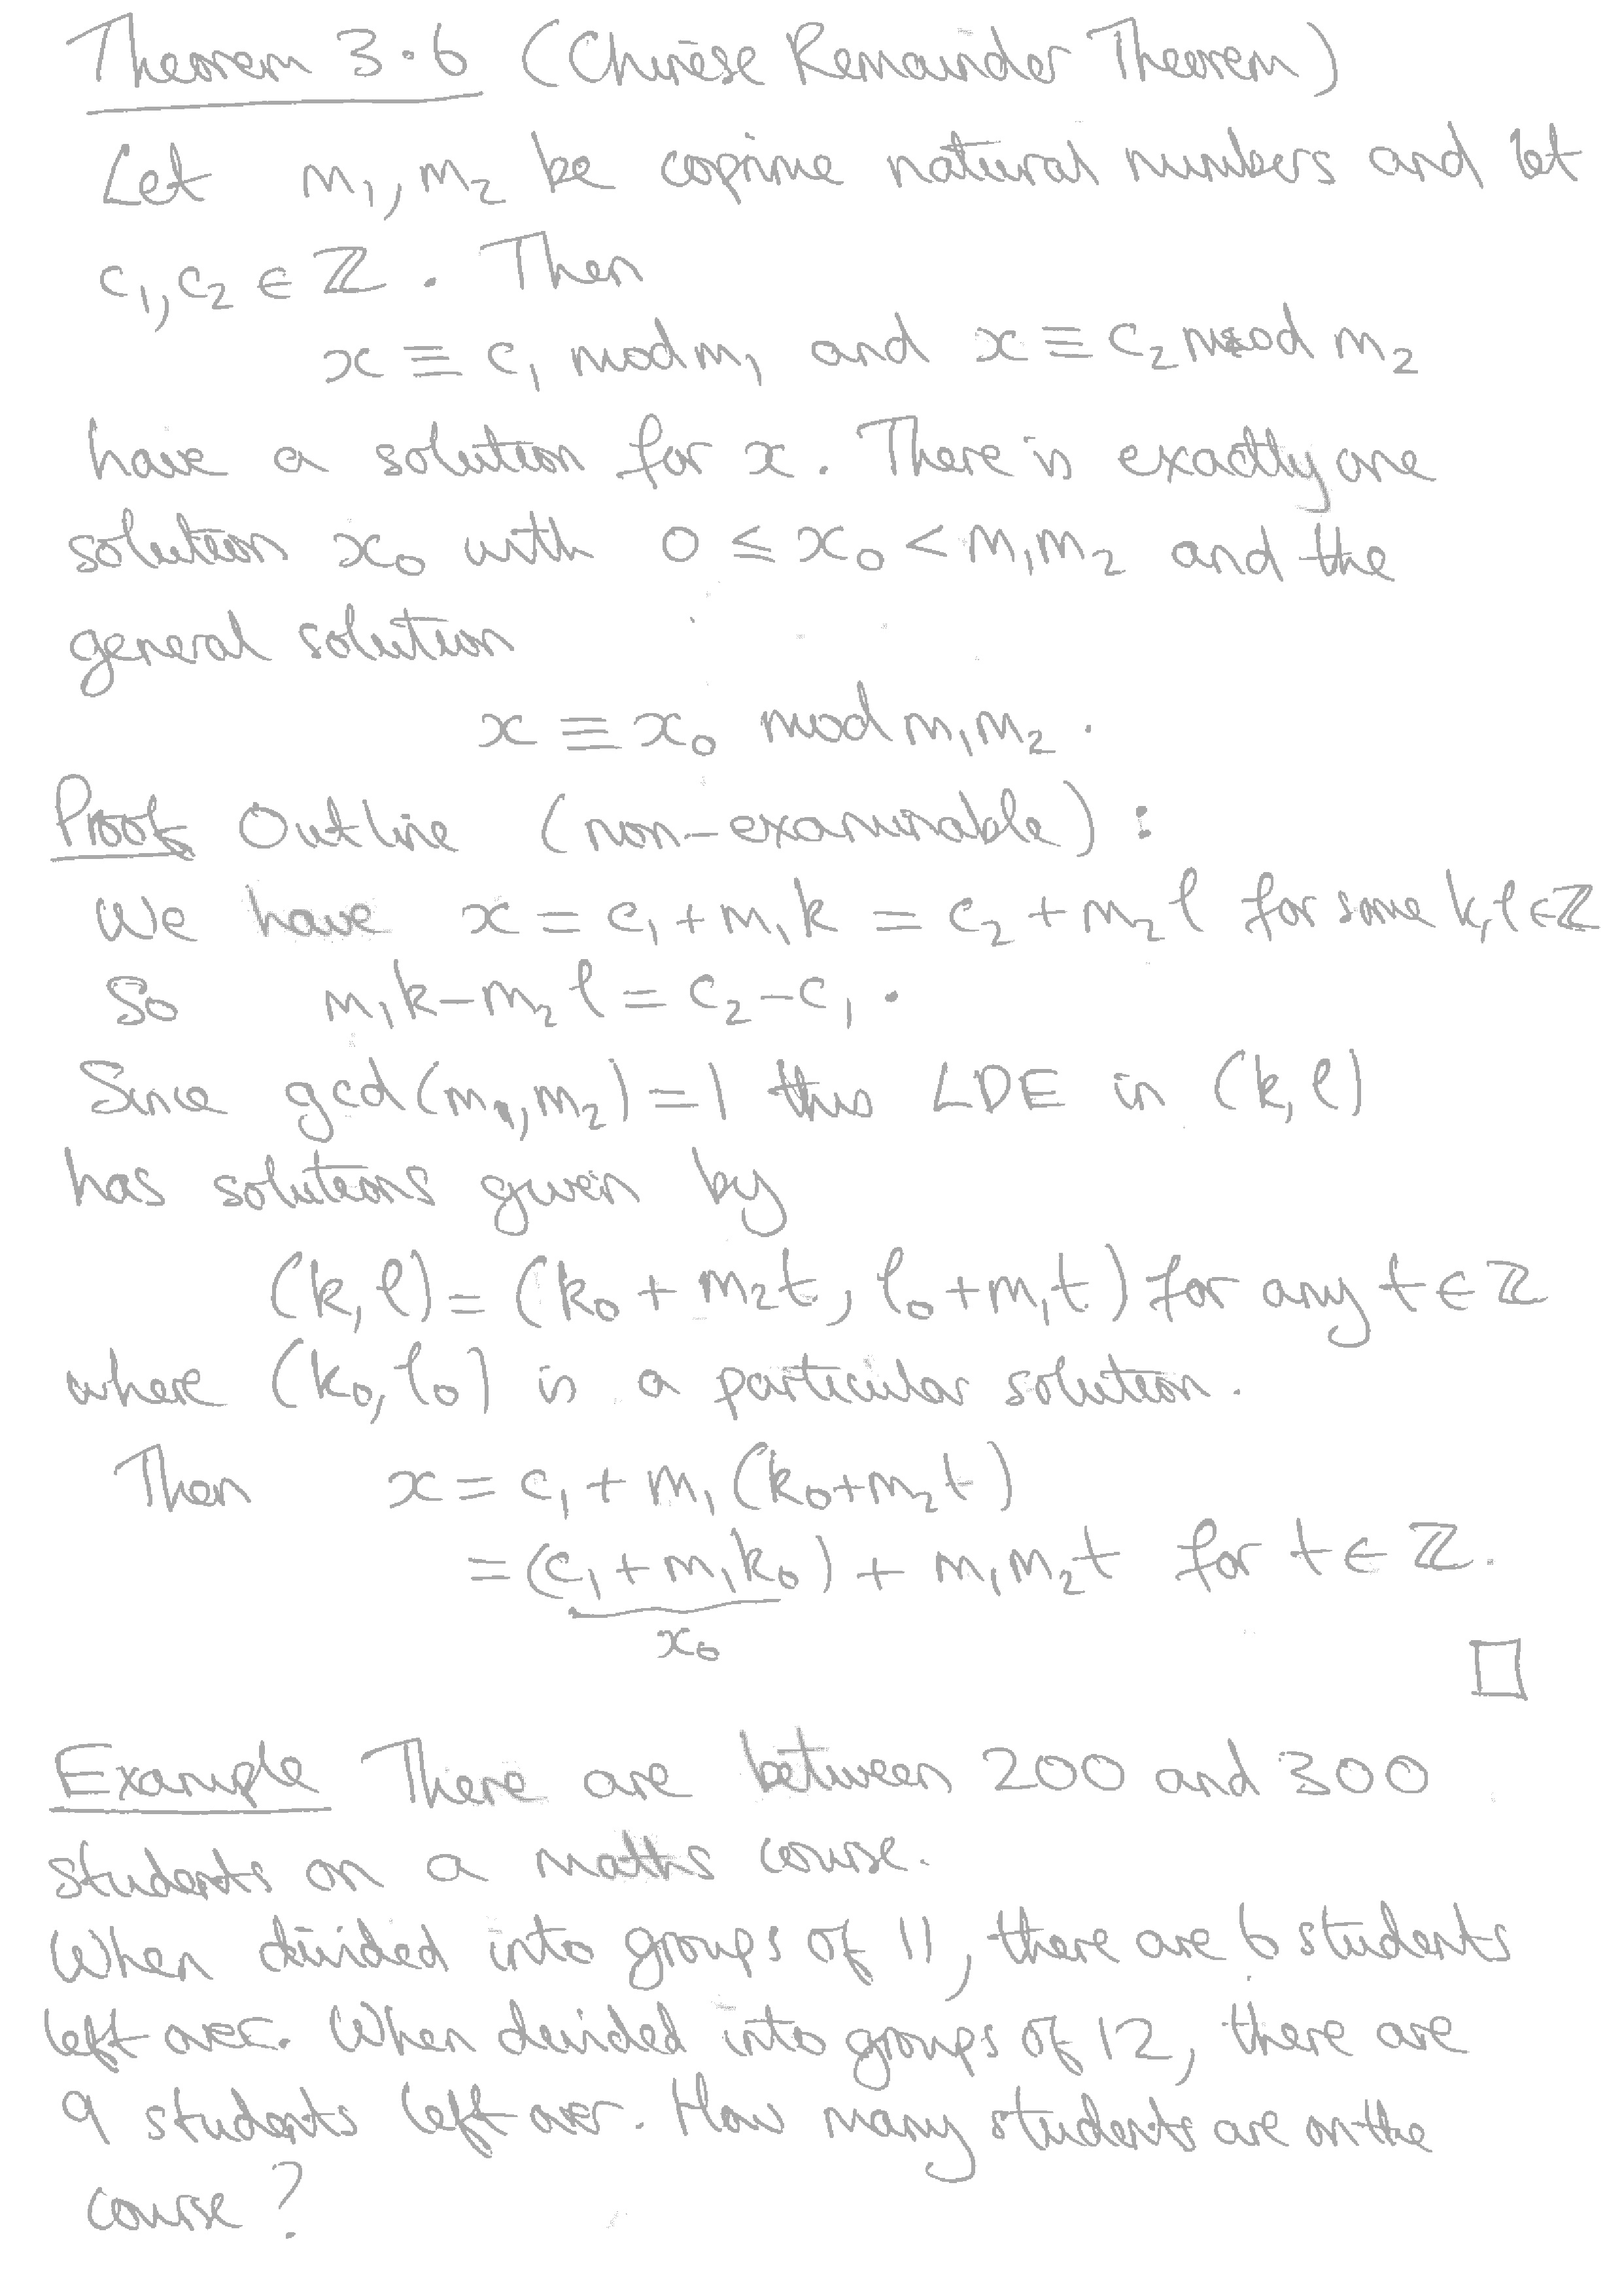 Theorem 3.6 (Chinese Remainder Theorem)
Let m₁, m₂ be coprime natural numbers and let
c₁, c₂ ∈ ℤ. Then
x ≡ c₁ mod m₁ and x ≡ c₂ mod m₂
have a solution for x. There is exactly one
solution x₀ with 0 ≤ x₀ < m₁m₂ and the
general solution
x ≡ x₀ mod m₁m₂.
Proof Outline (non-examinable):
We have x = c₁ + m₁k = c₂ + m₂l for some k, l ∈ ℤ
So m₁k – m₂l = c₂ – c₁.
Since gcd(m₁, m₂) = 1 this LDE in (k, l)
has solutions given by
(k, l) = (k₀ + m₂t, l₀ + m₁t) for any t ∈ ℤ
where (k₀, l₀) is a particular solution.
Then x = c₁ + m₁(k₀ + m₂t)
= (c₁ + m₁k₀) + m₁m₂t for t ∈ ℤ.
x₀
□
Example There are between 200 and 300
students on a maths course.
When divided into groups of 11, there are 6 students
left over. When divided into groups of 12, there are
9 students left over. How many students are on the
course?